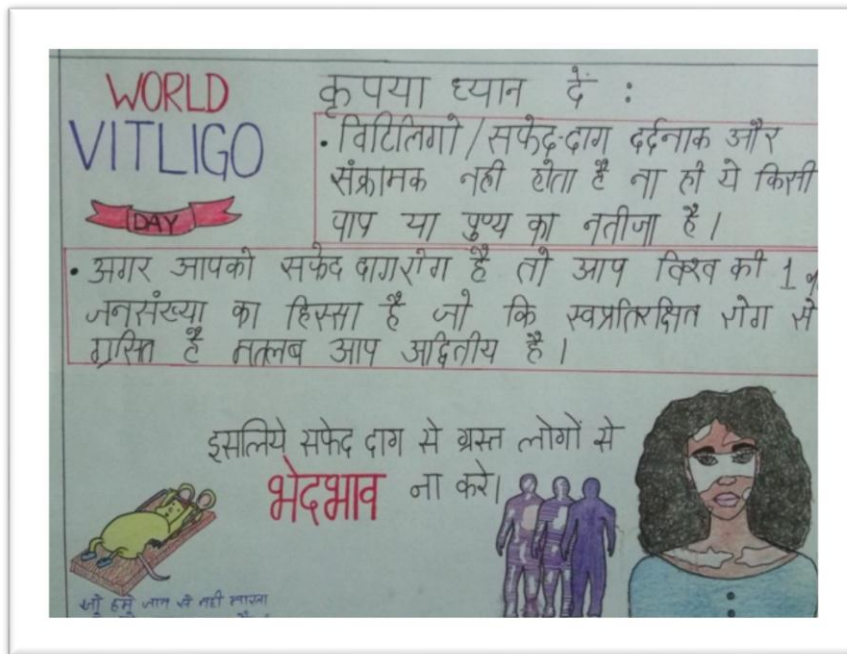 WORLD
VITLIGO
DAY
कृपया ध्यान दें :
• विटिलिगो/सफेद-दाग दर्दनाक और
संक्रामक नही होता है ना ही ये किसी
पाप या पुण्य का नतीजा है।
• अगर आपको सफेद दागरोग है तो आप विश्व की 1
जनसंख्या का हिस्सा है जो कि स्वप्रतिरक्षित रोग से
ग्रसित है मतलब आप अद्वितीय है।
इसलिये सफेद दाग से ग्रस्त लोगों से
भेदभाव ना करे।
जो हमे जान से नही मारता